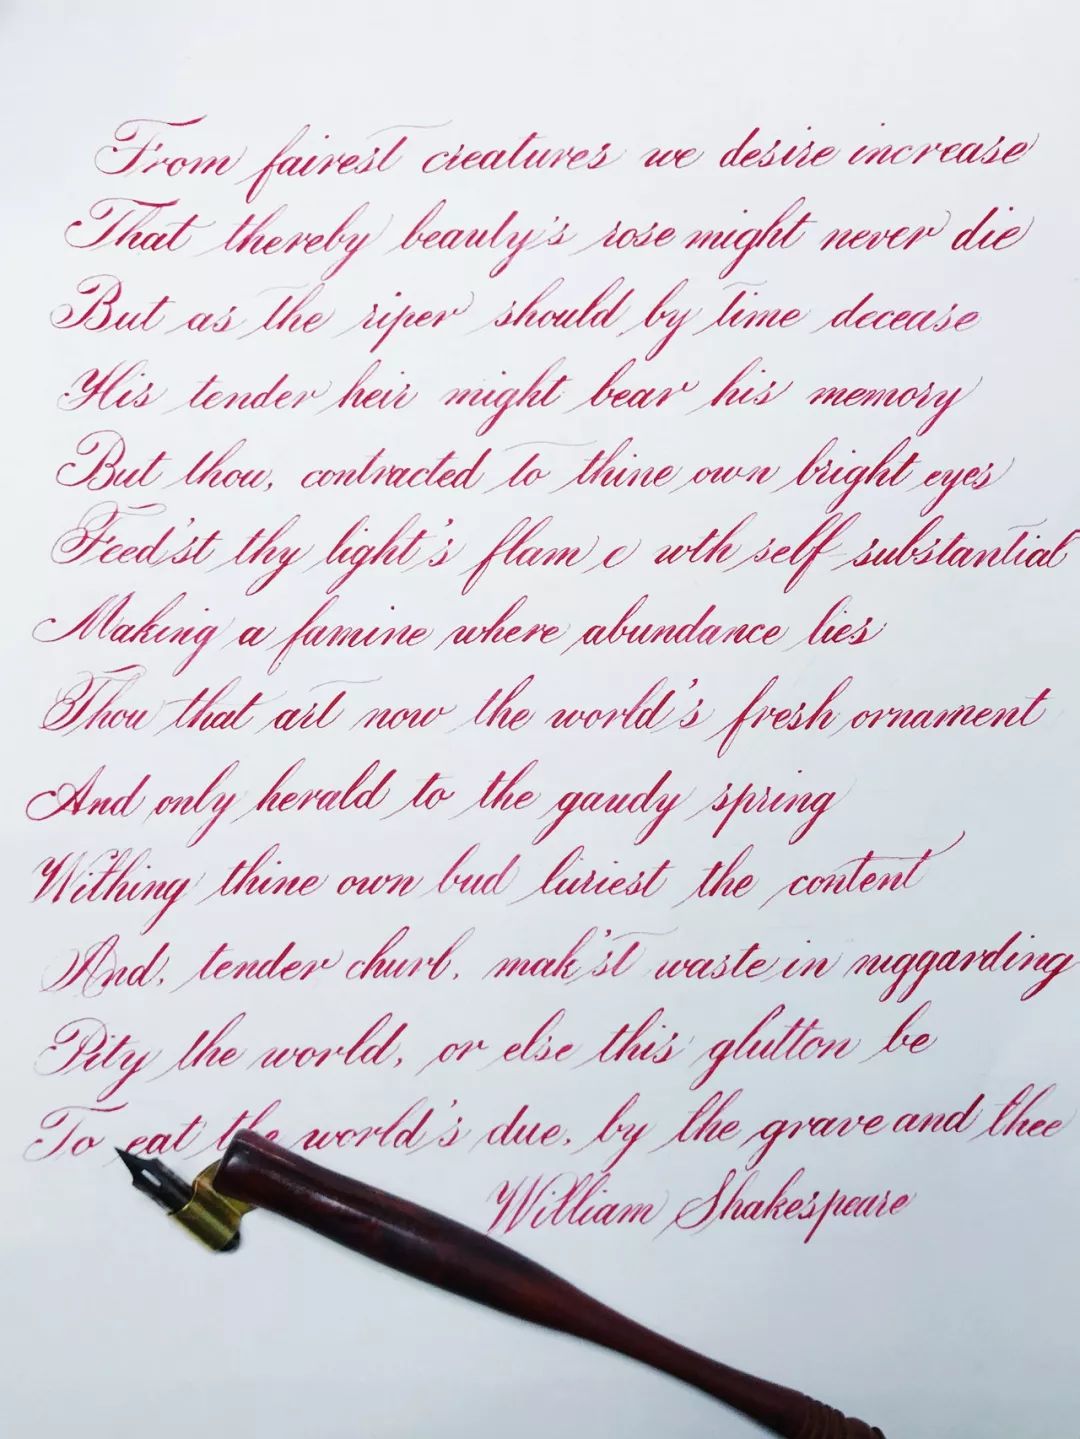 From fairest creatures we desire increase
That thereby beauty's rose might never die
But as the riper should by time decease
His tender heir might bear his memory
But thou, contracted to thine own bright eyes
Feed'st thy light's flam e wth self substantial
Making a famine where abundance lies
Thou that art now the world's fresh ornament
And only herald to the gaudy spring
Withing thine own bud buriest the content
And, tender churl, mak'st waste in niggarding
Pity the world, or else this glutton be
To eat the world's due, by the grave and thee
William Shakespeare